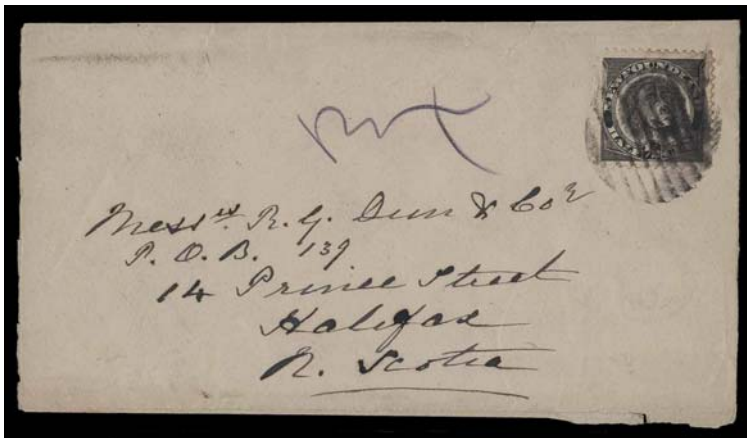 NEWFOUNDLAND
Messrs R. G. Dun & Co
P. O. B. 139
14 Prince Street
Halifax
N. Scotia